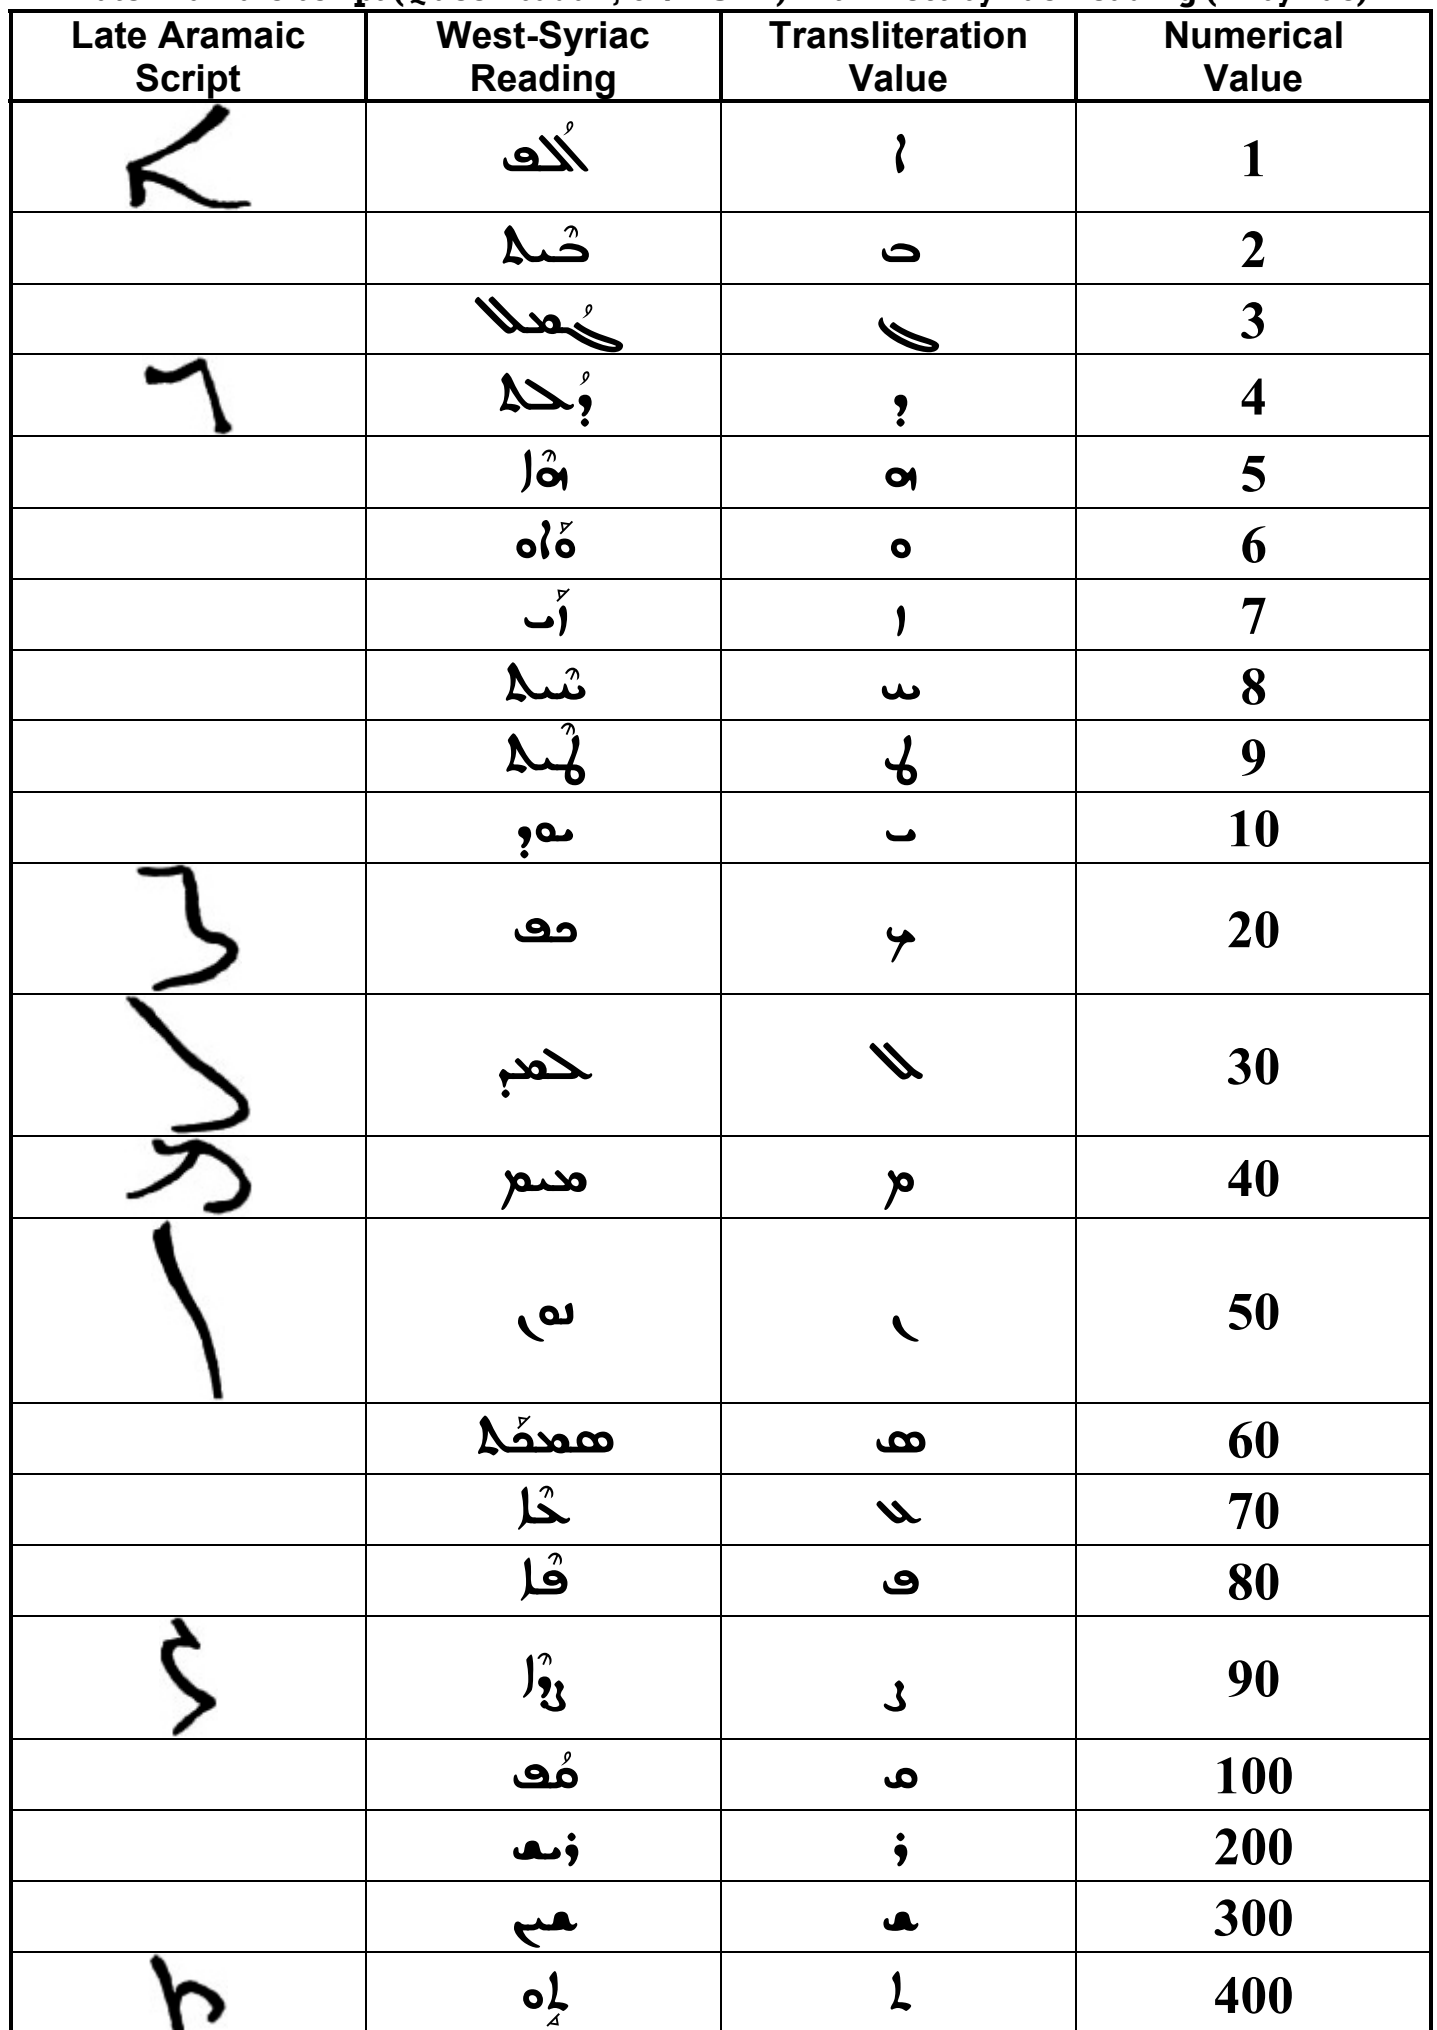 Late Aramaic Script West-Syriac Reading Transliteration Value Numerical Value
ܐܳܠܦ ܐ 1
ܒܶܝܬ ܒ 2
ܓܳܡܠ ܓ 3
ܕܳܠܬ ܕ 4
ܗܶܐ ܗ 5
ܘܰܐܘ ܘ 6
ܙܰܝ ܙ 7
ܚܶܝܬ ܚ 8
ܛܶܝܬ ܛ 9
ܝܘܕ ܝ 10
ܟܦ ܟ 20
ܠܡܕ ܠ 30
ܡܝܡ ܡ 40
ܢܘܢ ܢ 50
ܣܡܟܰܬ ܣ 60
ܥܶܐ ܥ 70
ܦܶܐ ܦ 80
ܨܕܶܐ ܨ 90
ܩܳܦ ܩ 100
ܪܝܫ ܪ 200
ܫܝܢ ܫ 300
ܬܰܘ ܬ 400